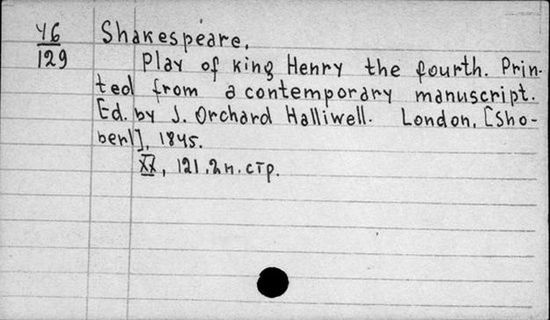 46
129
Shakespeare.
Play of king Henry the fourth. Prin-
ted from a contemporary manuscript.
Ed. by J. Orchard Halliwell. London, [Sho-
berl], 1845.
XX, 121, 2 н. стр.